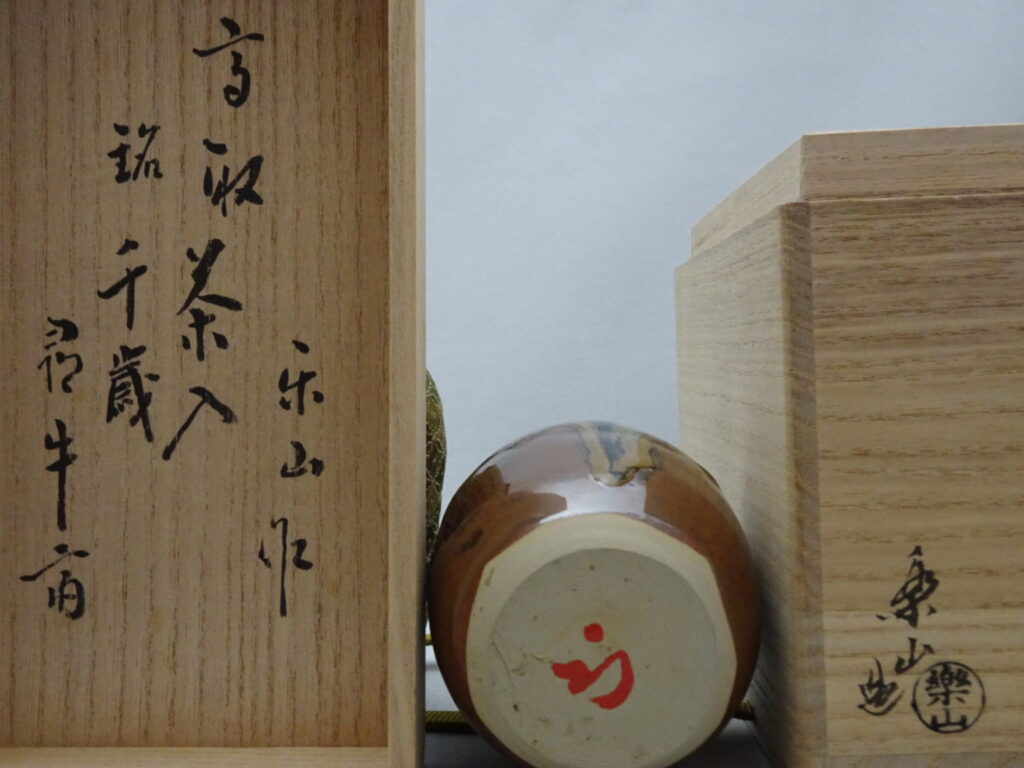 楽山作
高取茶入
銘千歳
尋牛斎
楽山造
樂山